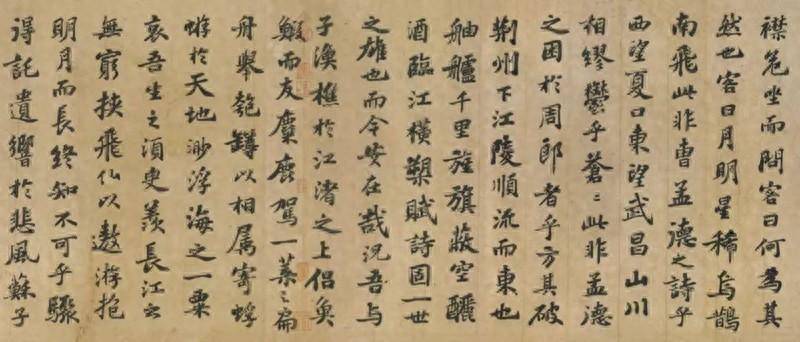 襟危坐而問客曰何為其
然也客曰月明星稀烏鵲
南飛此非曹孟德之詩乎
西望夏口東望武昌山川
相繆鬱乎蒼〻此非孟德
之困於周郎者乎方其破
荊州下江陵順流而東也
舳艫千里旌旗蔽空釃
酒臨江橫槊賦詩固一世
之雄也而今安在哉況吾與
子漁樵於江渚之上侶魚
鰕而友麋鹿駕一葉之扁
舟舉匏罇以相属寄蜉
蝣於天地渺浮海之一粟
哀吾生之須臾羨長江之
無窮挾飛仙以遨遊抱
明月而長終知不可乎驟
得託遺響於悲風蘇子